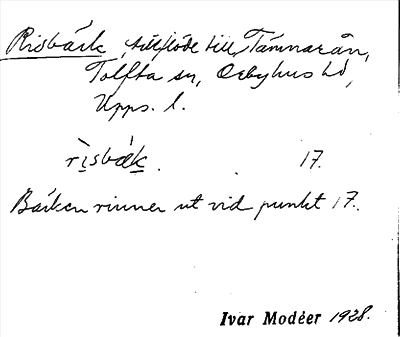 Risbäck, tillflöde till Tämnarån,
Tolfta sn, Örbyhus hd,
Upps. l.
rìsbæk. 17.
Bäcken rinner ut vid punkt 17.
Ivar Modéer 1928.